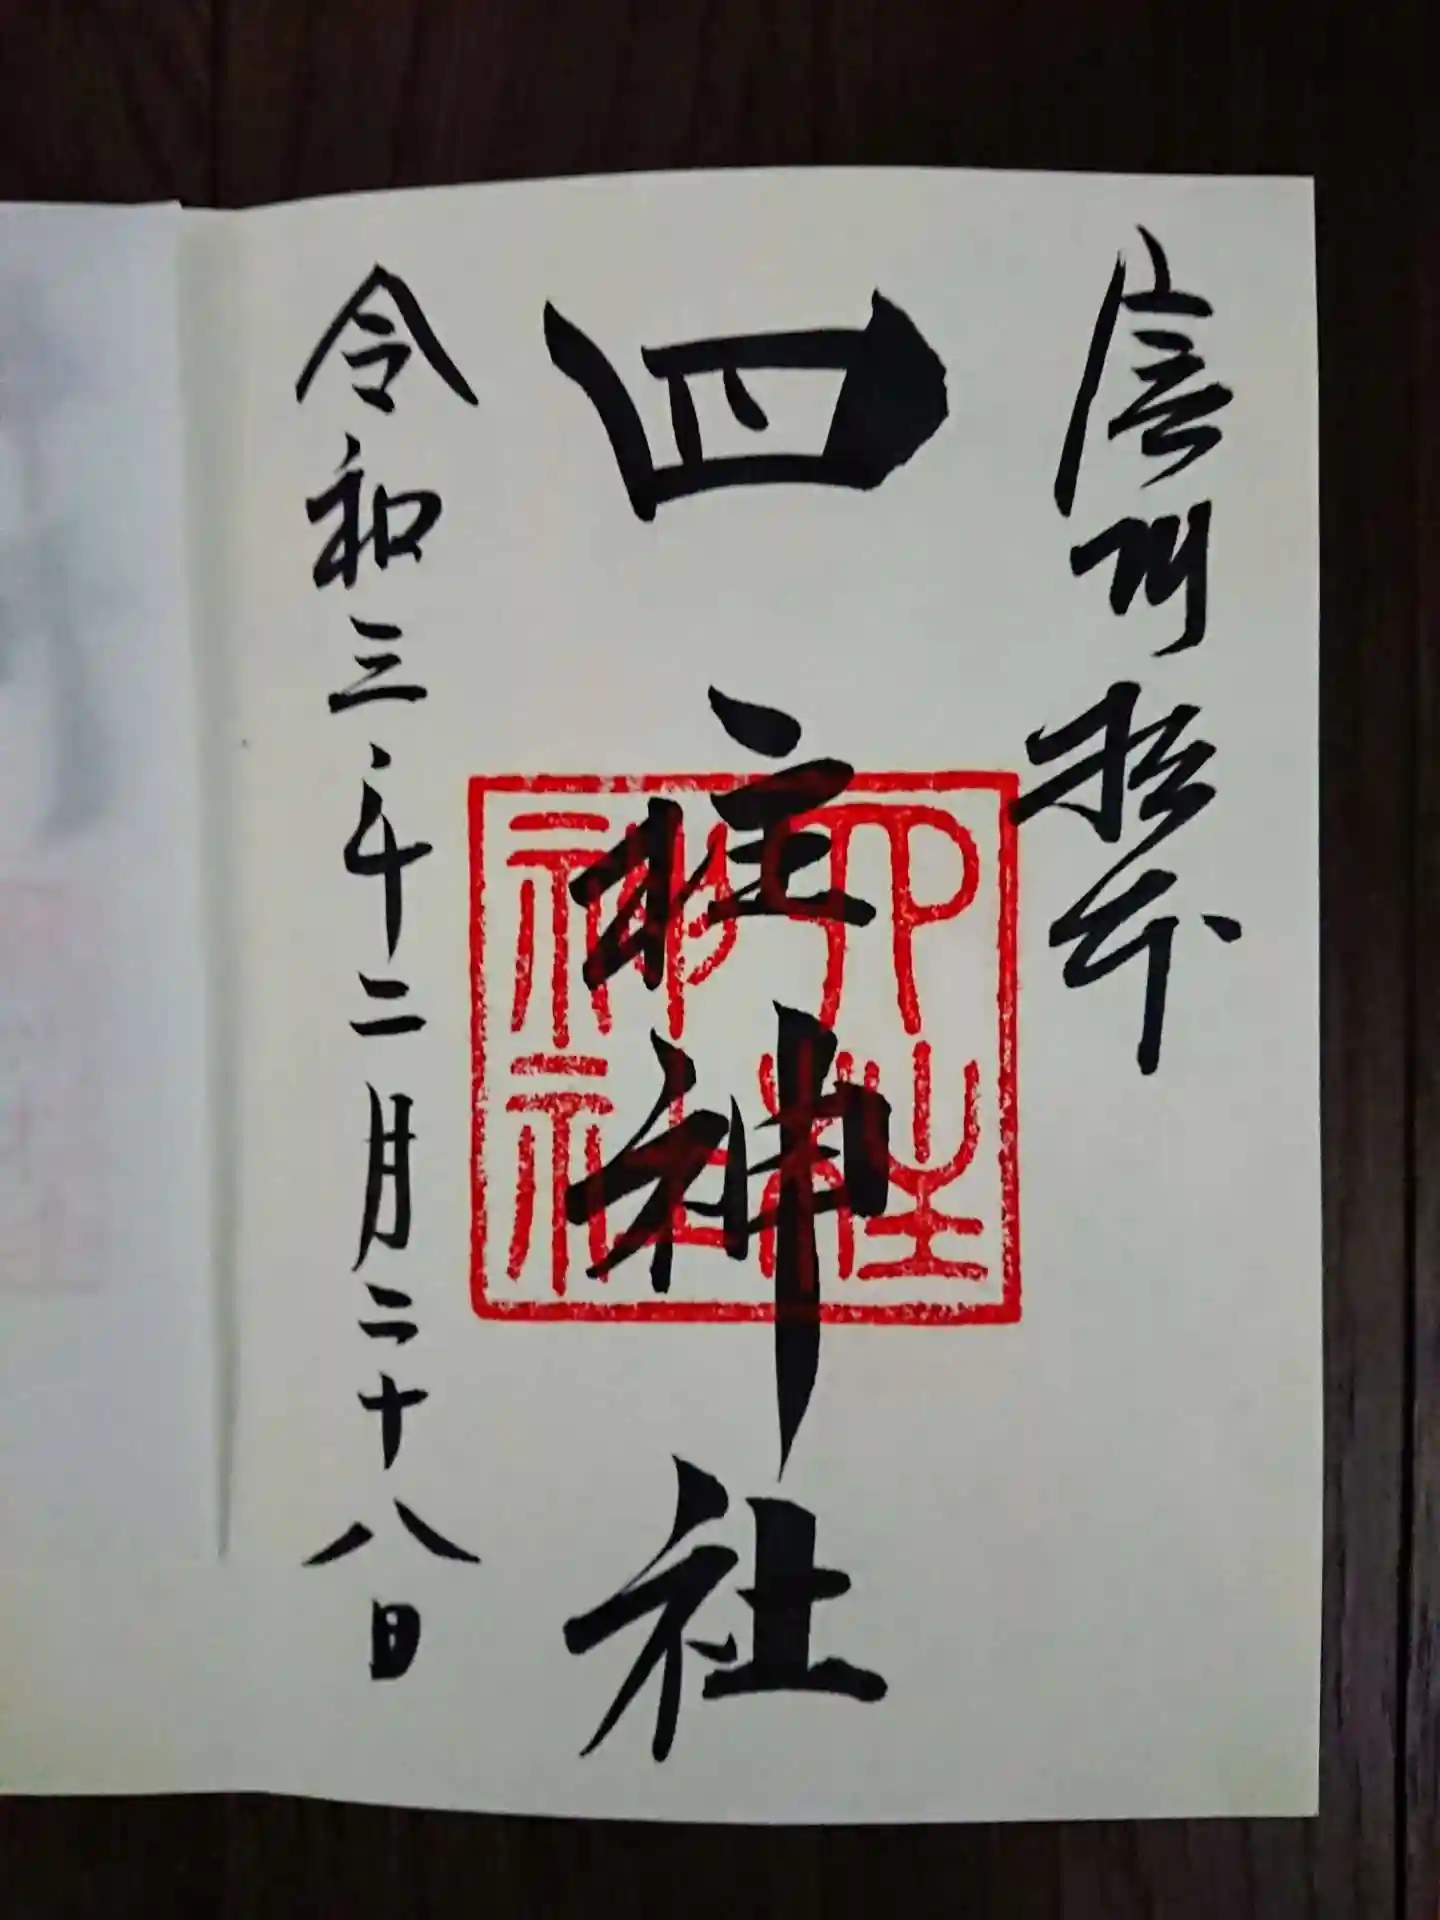 信州松本
四柱神社
四柱神社
令和三年二月二十八日